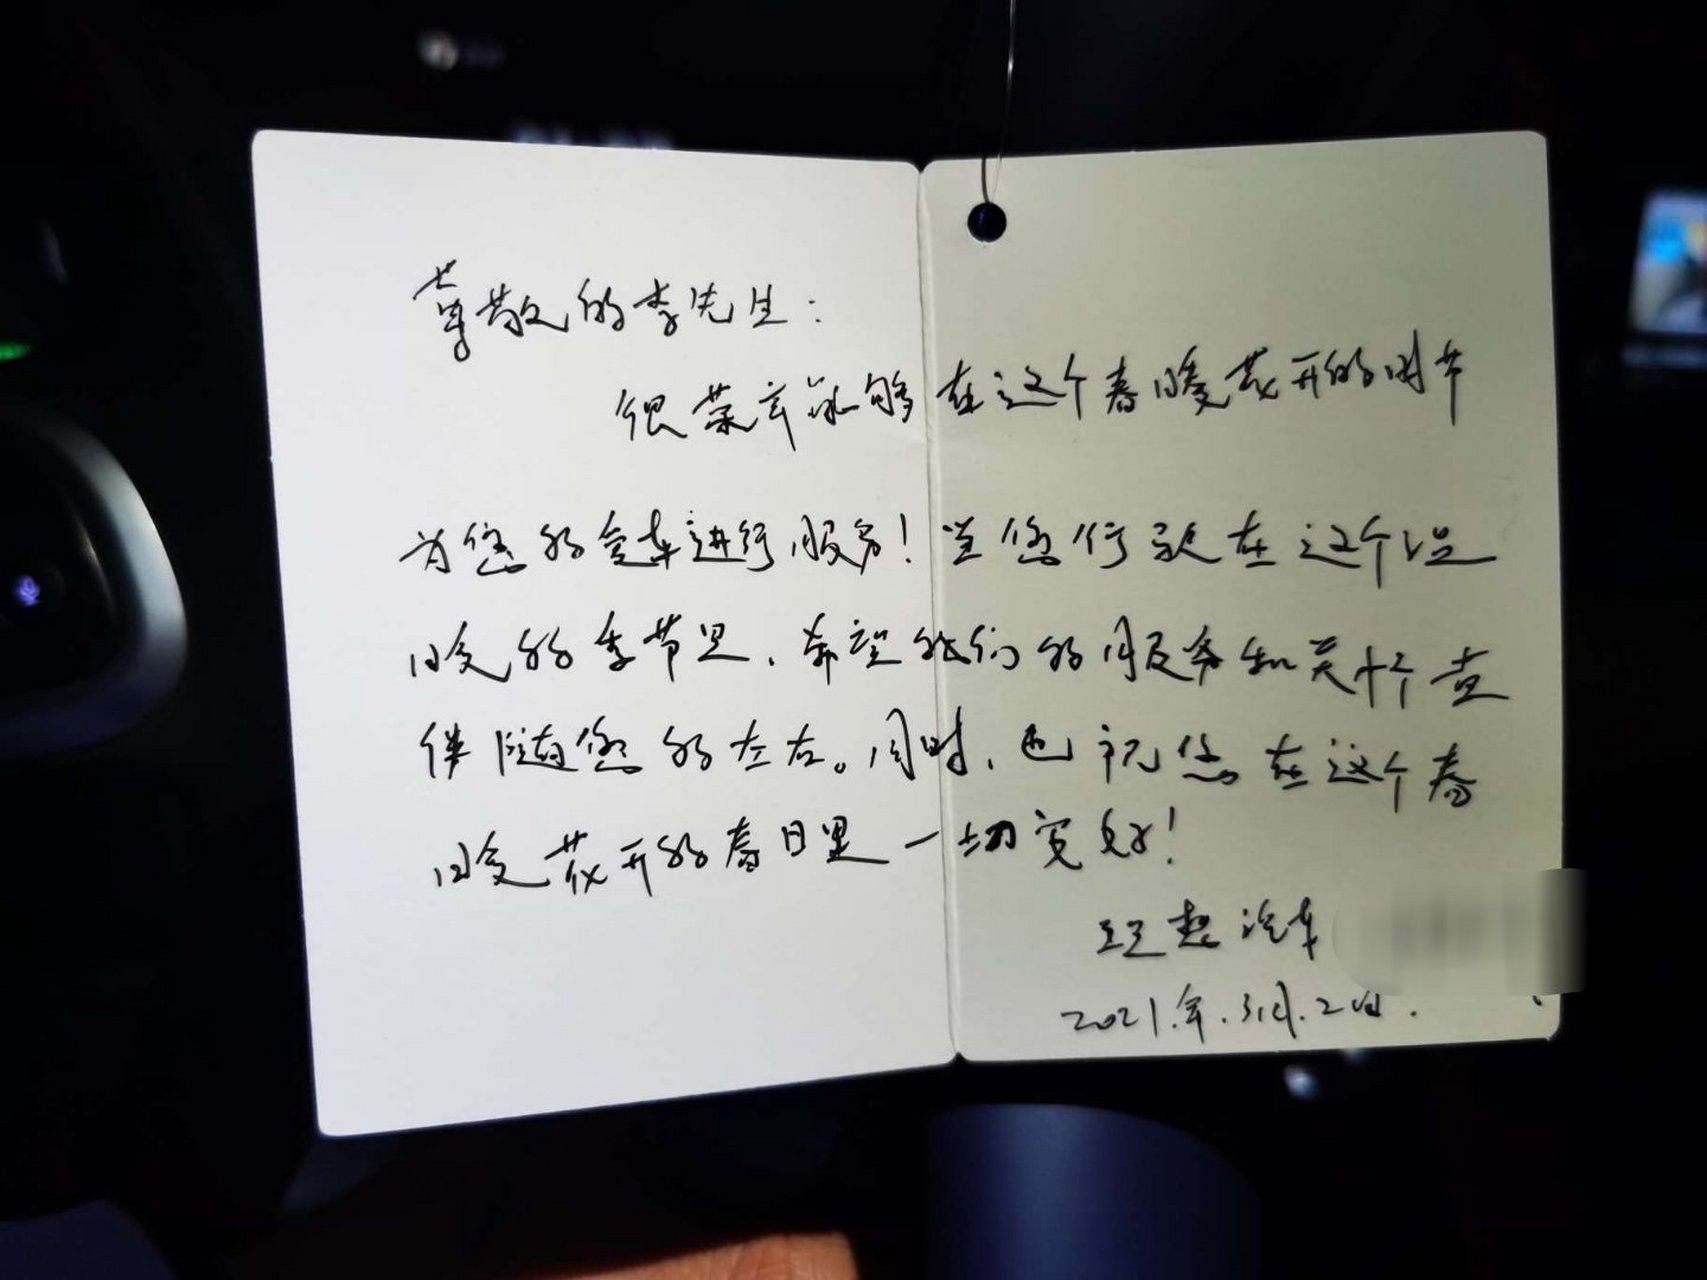 尊敬的李先生：
很荣幸能够在这个春暖花开的时节
为您的爱车进行服务！当您行驶在这个温
暖的季节里，希望我们的服务和关怀一直
伴随您的左右。同时，也祝您在这个春
暖花开的春日里一切安好！
超汽车
2021.年.3月.2日.